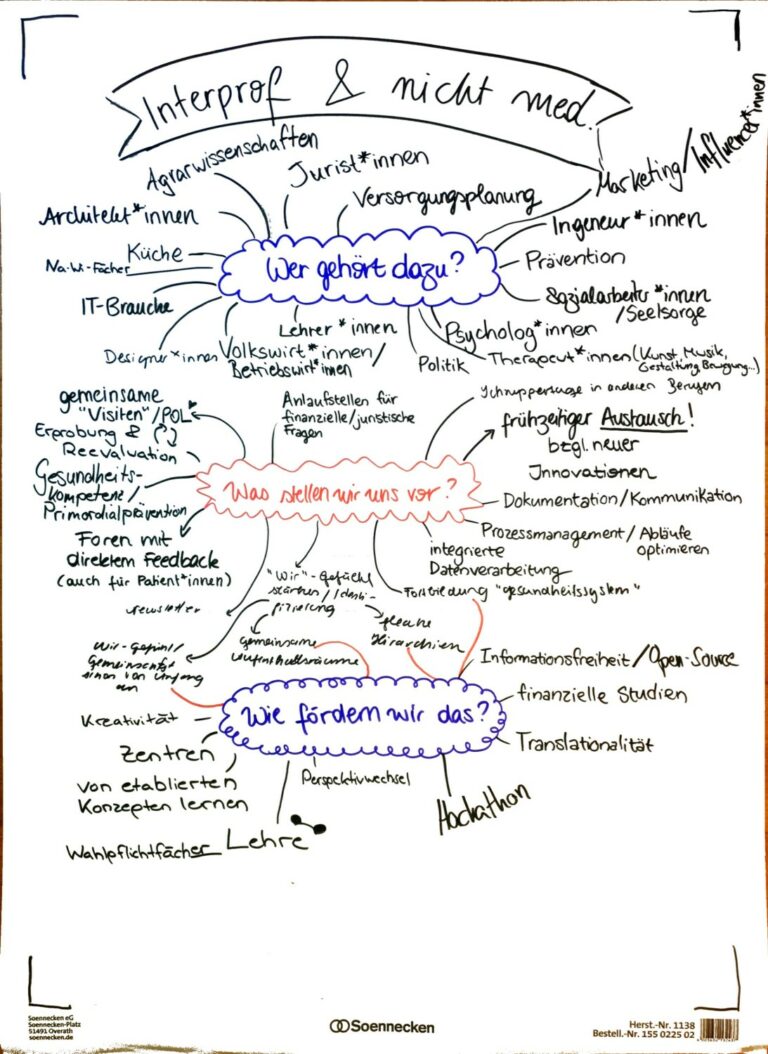 Interprof & nicht med.
Agrarwissenschaften
Jurist*innen
Versorgungsplanung
Marketing/Influencer*innen
Architekt*innen
Ingeneur*innen
Küche
Na-Wi-Fächer
Wer gehört dazu?
Prävention
IT-Branche
Sozialarbeiter*innen
/Seelsorge
Designer*innen
Volkswirt*innen/
Betriebswirt*innen
Lehrer*innen
Politik
Psycholog*innen
Therapeut*innen (Kunst, Musik,
Gestaltung Bewegung...)
gemeinsame
"Visiten"/POL
Erprobung &
Reevaluation
Gesundheits-
kompetenz/
Primordialprävention
Foren mit
direktem Feedback
(auch für Patient*innen)
Anlaufstellen für
finanzielle/juristische
Fragen
Schnuppertage in anderen Berufen
frühzeitiger Austausch!
bzgl. neuer
Innovationen
Was stellen wir uns vor?
Dokumentation/Kommunikation
Prozessmanagement/Abläufe
optimieren
integrierte
Datenverarbeitung
Fortbildung "Gesundheitssystem"
"Wir"-Gefühl
stärken/Identi-
fizierung
Newsletter
flache
Hirarchien
gemeinsame
Aufenthaltsräume
Wir-Gefühl/
Gemeinschafts
sinn von Umfang
an
Informationsfreiheit/Open-Source
finanzielle Studien
Wie fördern wir das?
Translationalität
Kreativität
Zentren
von etablierten
Konzepten lernen
Perspektivwechsel
Hackathon
Wahlpflichtfächer Lehre
Soennecken eG
Soennecken-Platz
51491 Overath
soennecken.de
Soennecken
Herst.-Nr. 1138
Bestell.-Nr. 155 0225 02